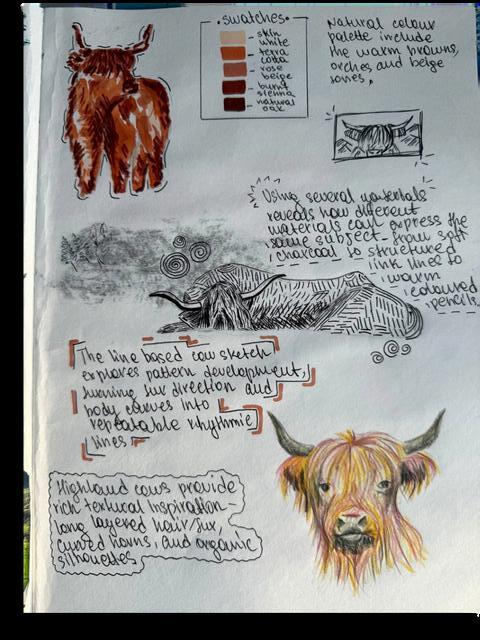 swatches
skin
white
terra
cotta
rose
beige
burnt
sienna
natural
oak
Natural colour
palette include
the warm browns,
ochres and beige
tones,
Using several materials
reveals how different
materials can express the
same subject - from soft
charcoal to structured
ink lines to
warm
coloured
pencils.
The line based cow sketch
explores pattern development,
turning fur direction and
body curves into
repeatable rhythmic
lines
Highland cows provide
rich textural inspiration -
long layered hair/fur,
curved horns, and organic
silhouettes